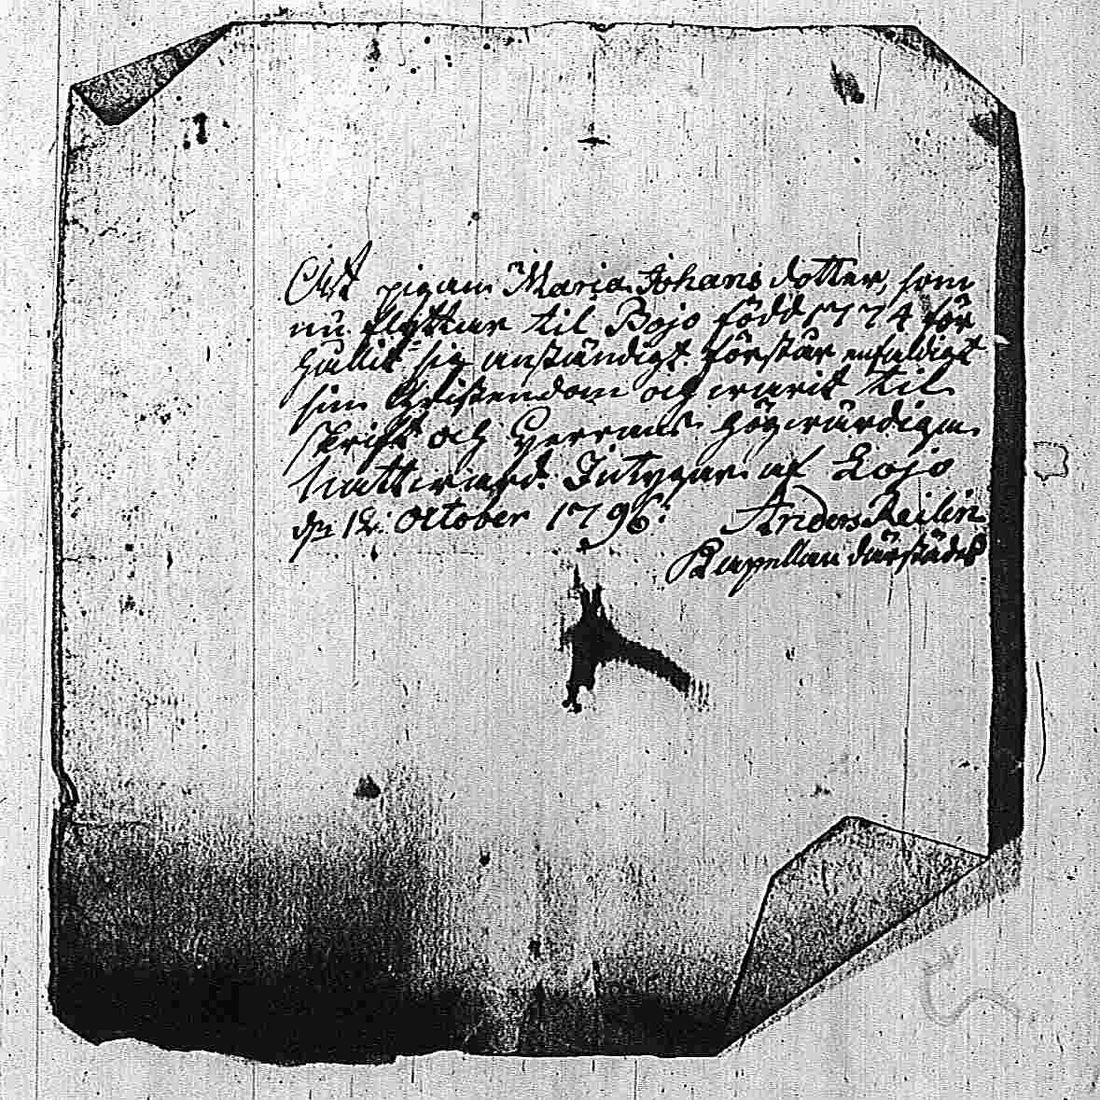 Att pigan Maria Johans dotter, som
nu flyttar til Bojo född 1774 för
hållit sig anständigt förstår enfaldigt
sin Kristendom och warit til
skrift och Herrans högwürdiga
Nattward. Intygar af Lojo
den 12 October 1796. Anders Reilin
Kapellan därstädes